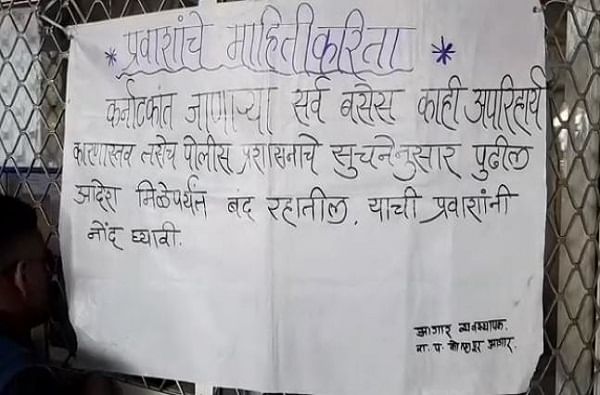 * प्रवाशांचे माहितीकरिता *
कर्नाटकांत जाणाऱ्या सर्व बसेस काही अपरिहार्य
कारणास्तव तसेच पोलीस प्रशासनाचे सुचनेनुसार पुढील
आदेश मिळेपर्यंत बंद रहातील, याची प्रवाशांनी
नोंद घ्यावी.
आगार व्यवस्थापक.
रा. प. कोल्हापूर आगार.